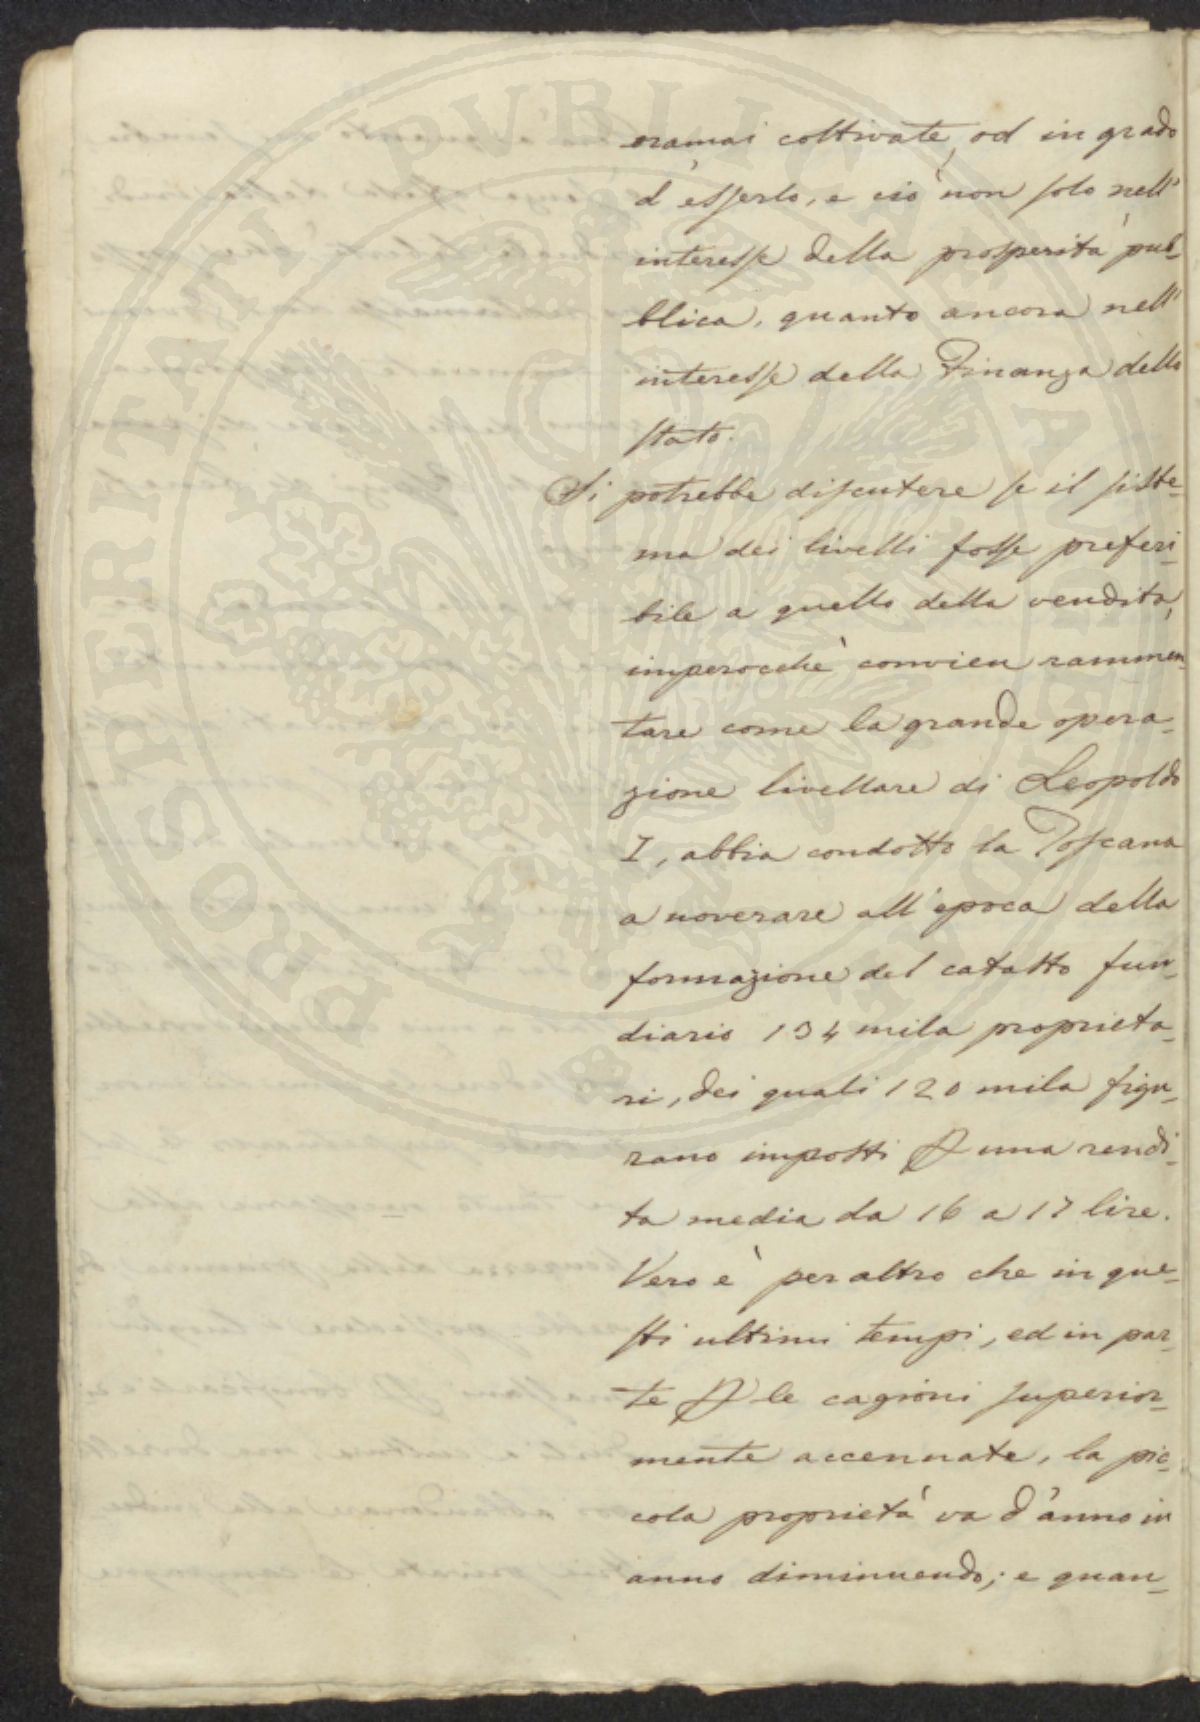 PROSPERITATI PVBLICAE AVGENDAE
oramai coltivate, od in grado
d'esserlo, e ciò non solo nell'
interesse della prosperità pub-
blica, quanto ancora nell'
interesse della Finanza dello
stato.
Si potrebbe discutere se il siste-
ma dei livelli fosse preferi-
bile a quello della vendita,
imperocchè convien rammen-
tare come la grande opera-
zione livellare di Leopoldo
I, abbia condotto la Toscana
a noverare all'epoca della
formazione del catasto fun-
diario 134 mila proprieta-
ri, dei quali 120 mila figu-
rano imposti P una rendi-
ta media da 16 a 17 lire.
Vero è per altro che in que-
sti ultimi tempi, ed in par-
te P le cagioni superior-
mente accennate, la pic-
cola proprietà va d'anno in
anno diminuendo; e quan-